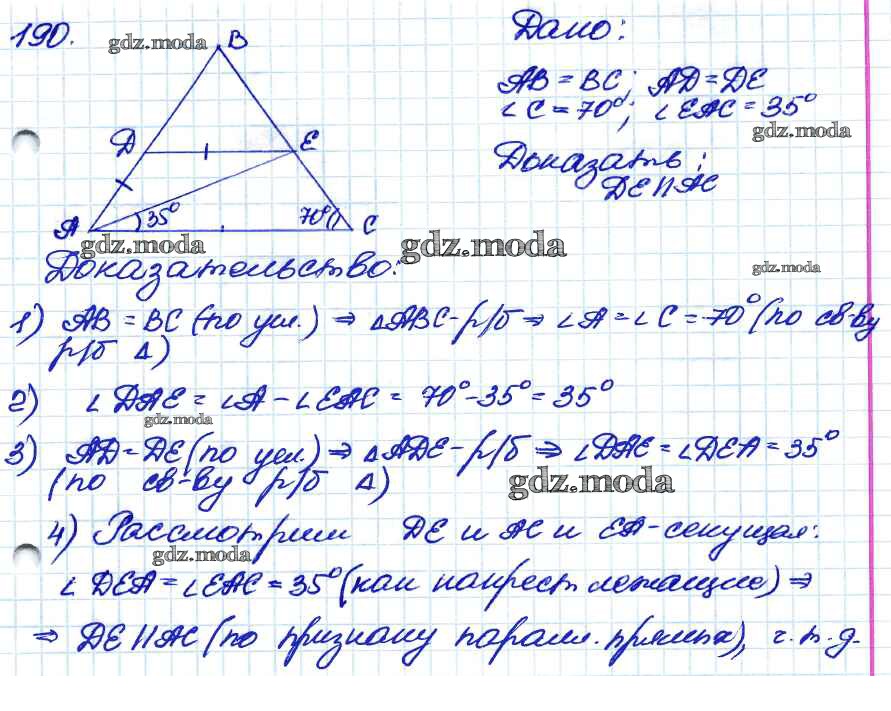 190.
gdz.moda
B
Дано:
AB = BC; AD = DE
∠C = 70°; ∠EAC = 35°
gdz.moda
Доказать:
DE || AC
D
E
A
35°
70°
C
gdz.moda
gdz.moda
gdz.moda
Доказательство:
1) AB = BC (по усл.) ⇒ △ABC - р/б ⇒ ∠A = ∠C = 70° (по св-ву
р/б △)
2) ∠DAE = ∠A - ∠EAC = 70° - 35° = 35°
gdz.moda
3) AD = DE (по усл.) ⇒ △ADE - р/б ⇒ ∠DAE = ∠DEA = 35°
(по св-ву р/б △)
gdz.moda
4) Рассмотрим DE и AC и EA - секущая:
gdz.moda
∠DEA = ∠EAC = 35° (как накрест лежащие) ⇒
⇒ DE || AC (по признаку парал. прямых), ч.т.д.